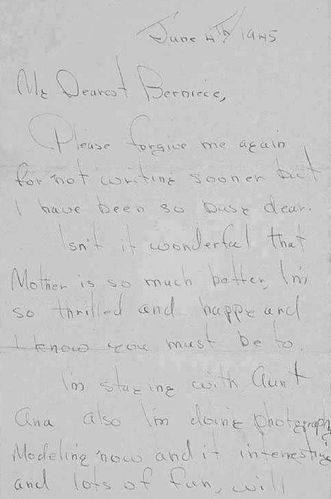 June 4th 1945
My Dearest Berniece,
Please forgive me again
for not writing sooner but
I have been so busy dear.
Isn't it wonderful that
Mother is so much better, I'm
so thrilled and happy and
I know you must be to.
I'm staying with Aunt
Ana also I'm doing photograph
Modeling now and it interesting
and lots of fun, will